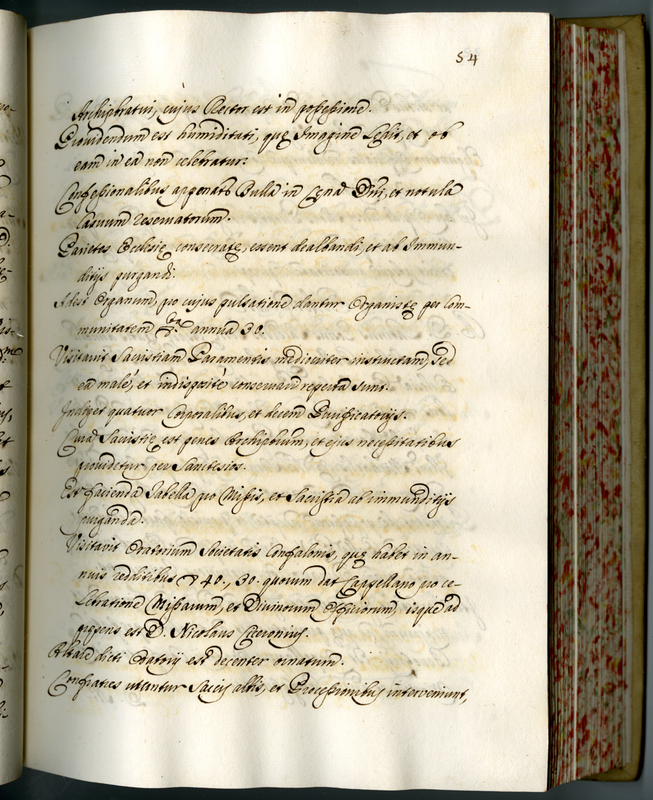 54
Archipħratui, cujus Rector est in possessione.
Providendum est humiditati, quę Imaginē lędit, et ob
eam in ea non celebratur.
Confessionalibus appendēt Bulla in Cęna Dñi, et notula
casuum reservatorum.
Parietes Ecclesię consecratę, essent dealbandi, et ab Immun-
ditijs purgandi.
Adest Organum, pro cujus pulsatione dantur Organistę per Com-
munitatem annua 30.
Visitavit Sacristiam Paramentis mediocriter instructam, sed
ea malè, et indispositè conservari reperta sunt.
Indiget quatuor Corporalibus, et decem Purificatorijs.
Cura Sacristię est penes Archiprum, et ejus necessitatibus
providetur per Sanctesios.
Est facienda Tabella pro Missis, et Sacristia ab immunditijs
purganda.
Visitavit Oratorium Societatis Confalonis, quę habet in an-
nuis redditibus 40., 30. quorum dat Cappellano pro ce-
lebratione Missarum, et Divinorum Officiorum, isque ad
pręsens est D. Nicolaus Ciceronius.
Altare dicti Oratorij est decenter ornatum.
Confratres utuntur Saccis albis, et Processionibus interveniunt,